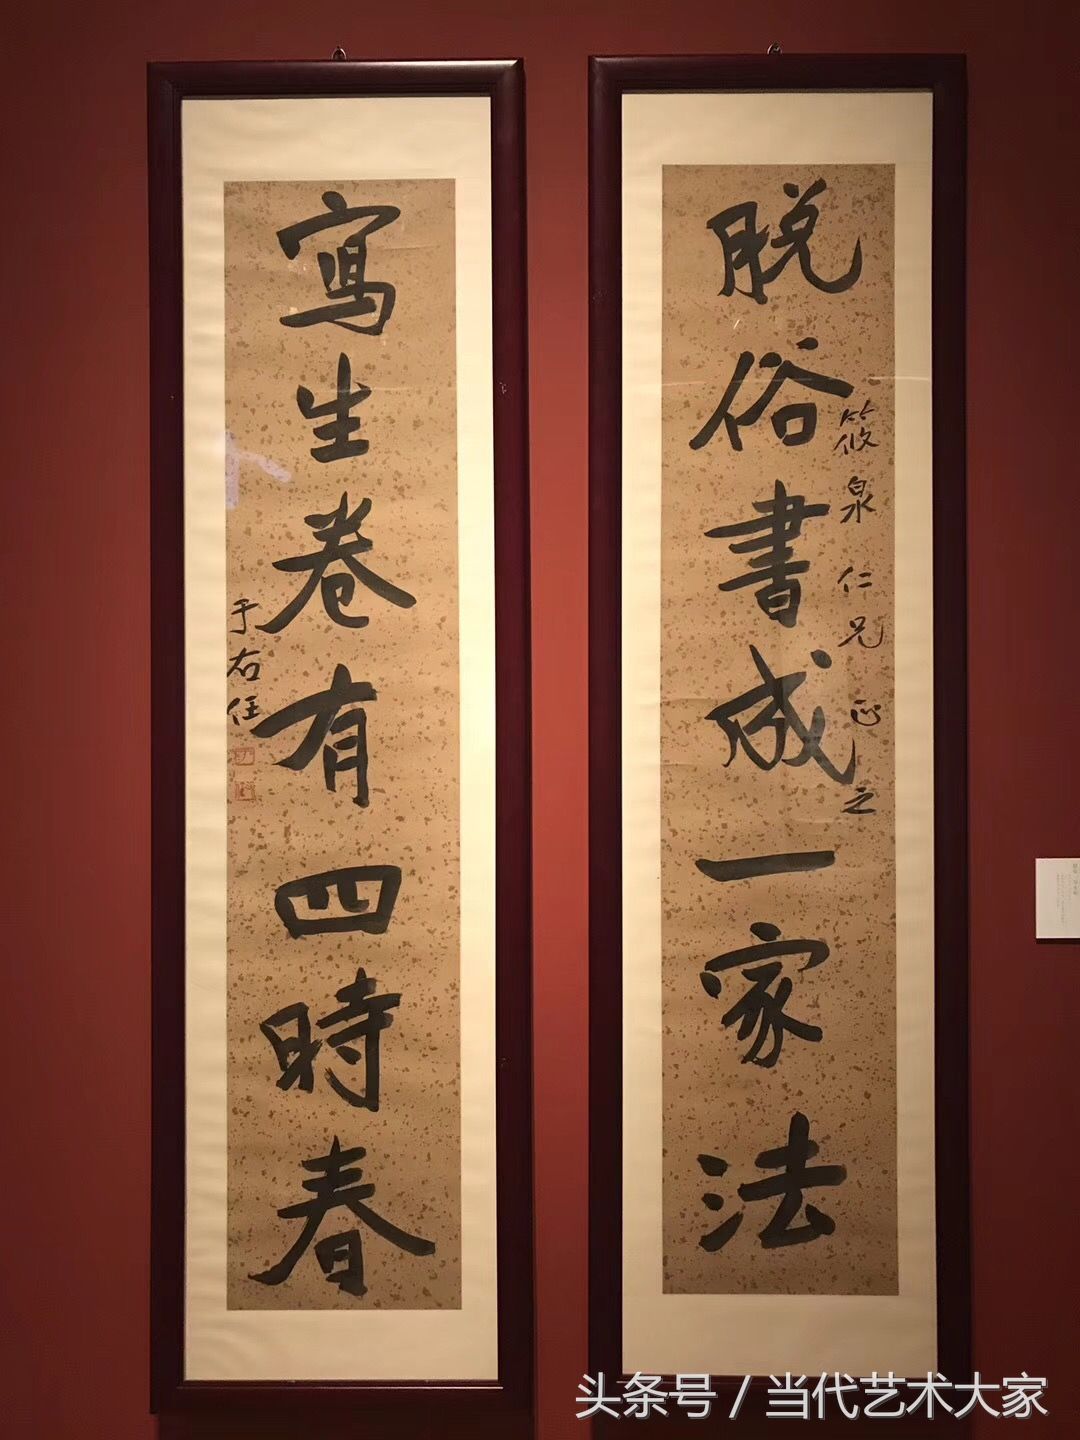 脱俗書成一家法
筱泉仁兄正之
寫生卷有四時春
于右任
头条号 / 当代艺术大家